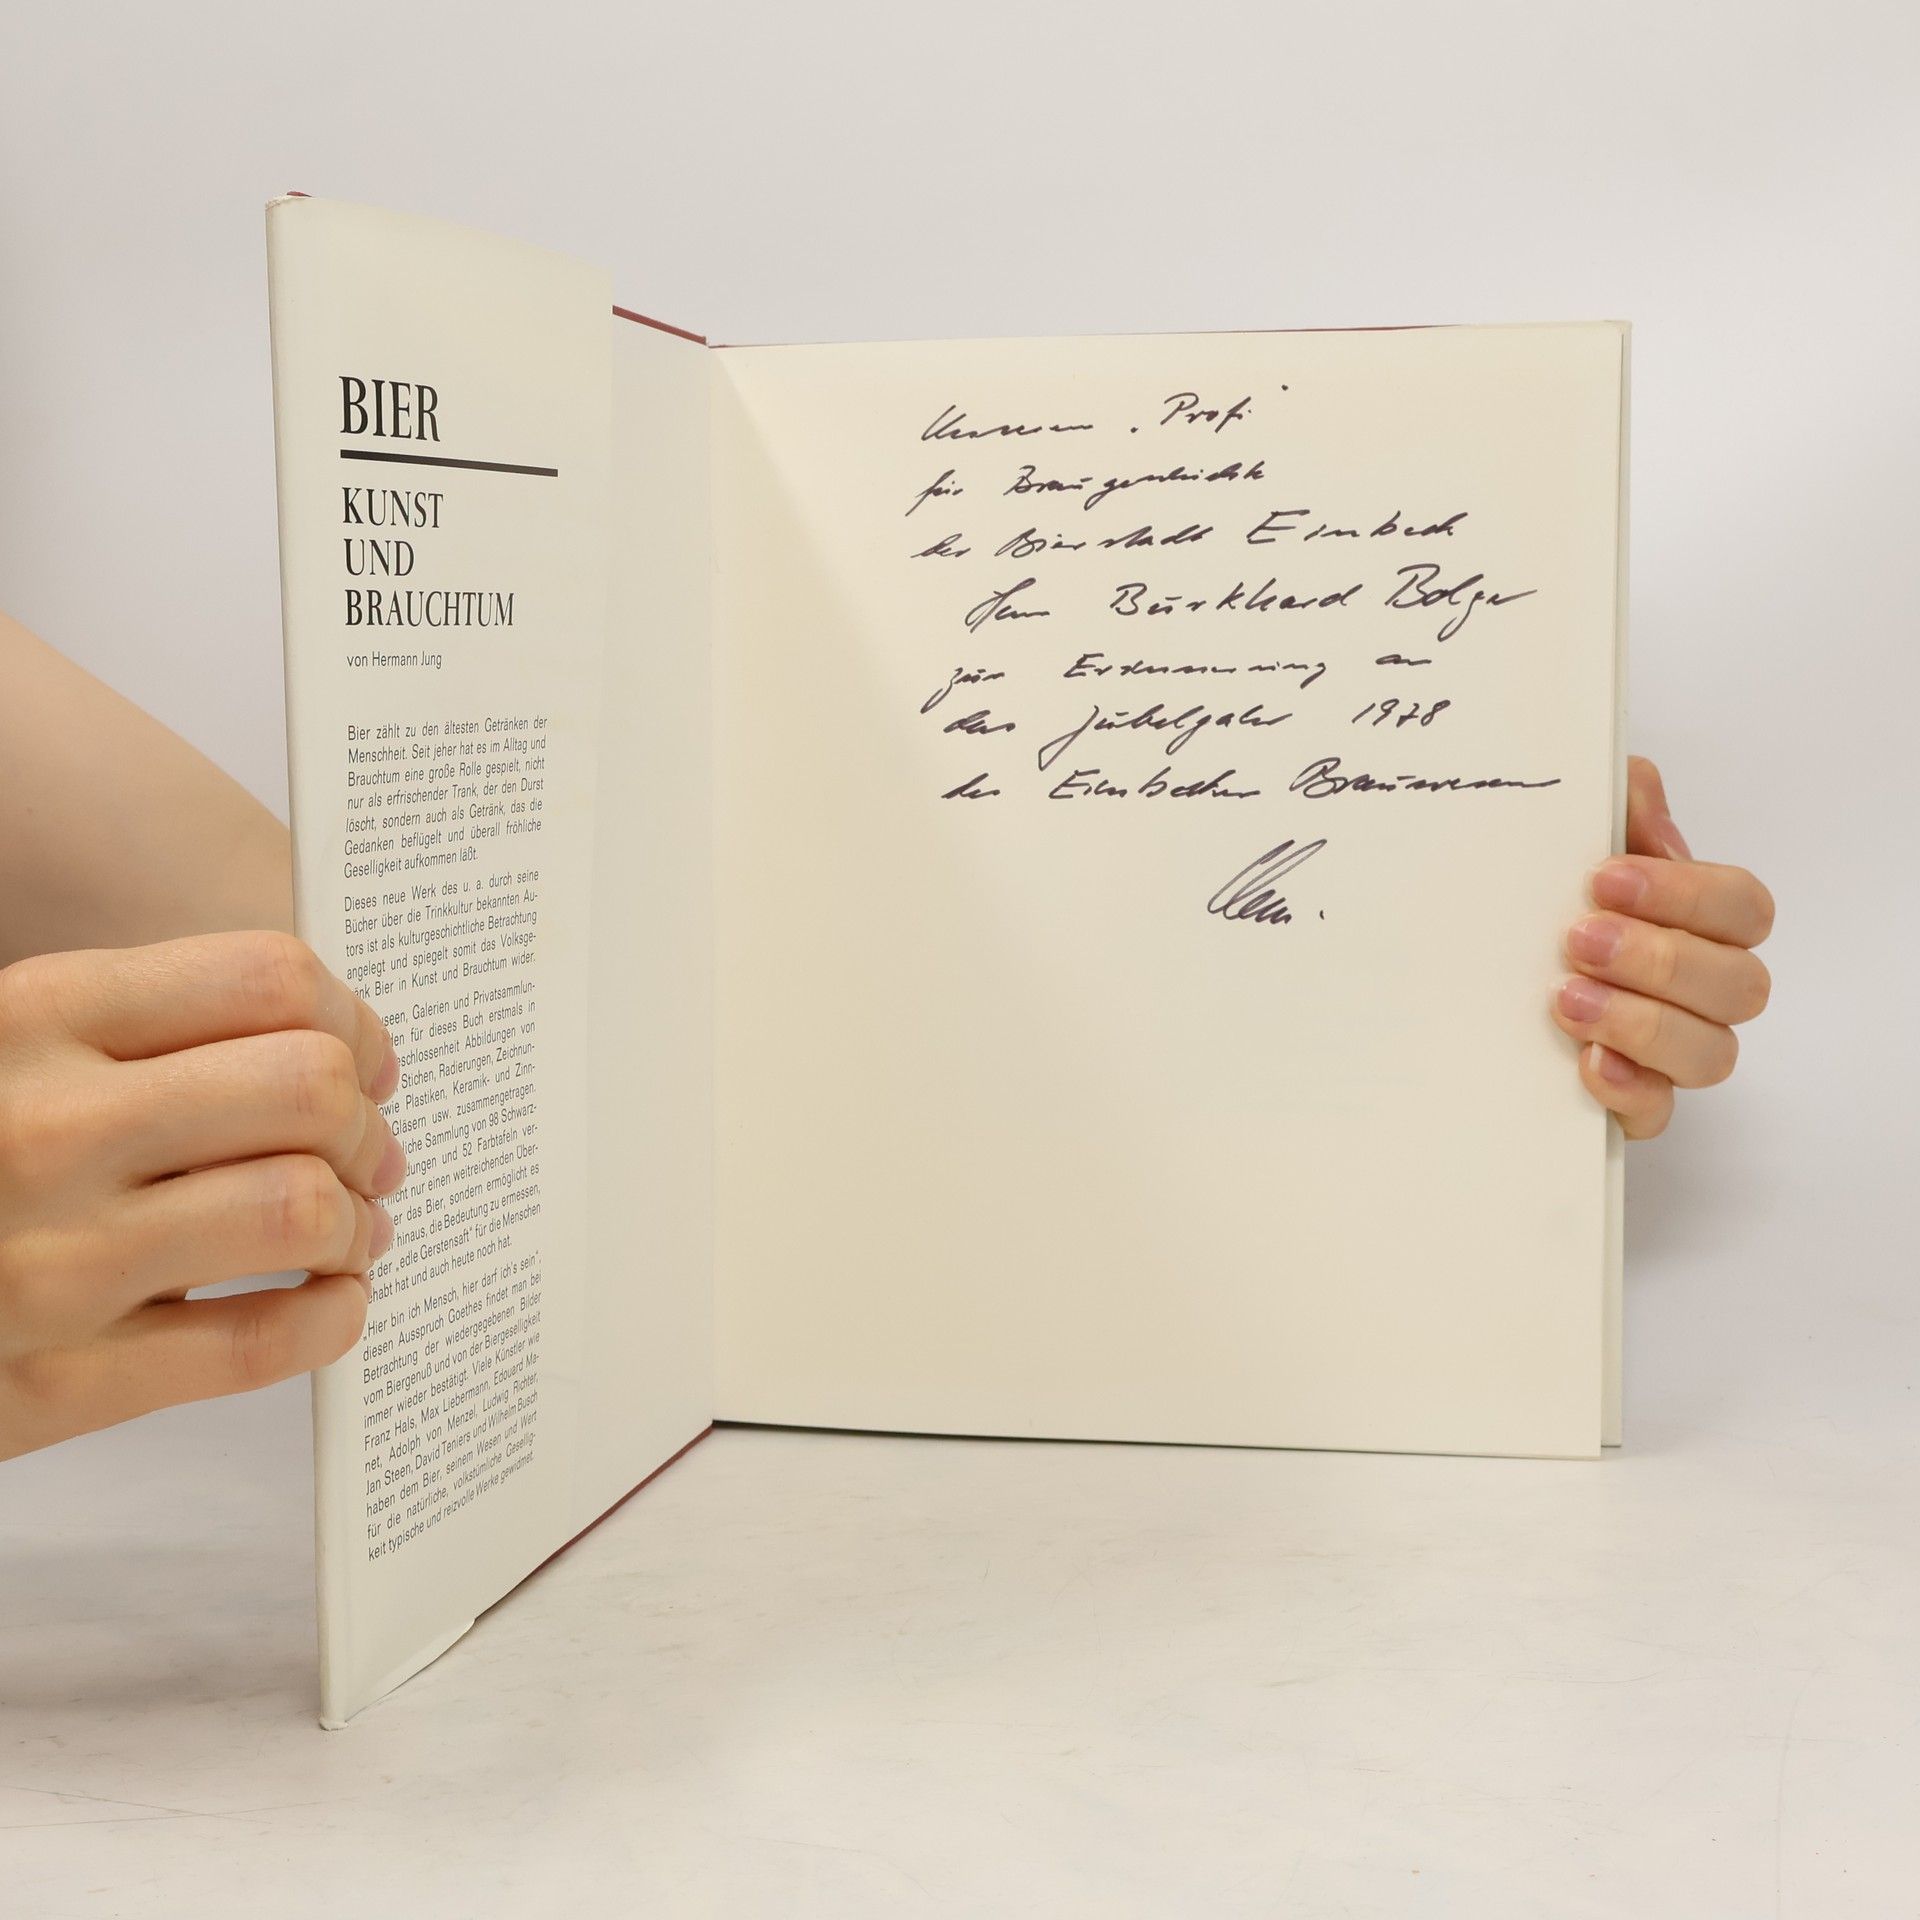 BIER
KUNST
UND
BRAUCHTUM
von Hermann Jung
Bier zählt zu den ältesten Getränken der
Menschheit. Seit jeher hat es im Alltag und
Brauchtum eine große Rolle gespielt, nicht
nur als erfrischender Trank, der den Durst
löscht, sondern auch als Getränk, das die
Gedanken beflügelt und überall fröhliche
Geselligkeit aufkommen läßt.
Dieses neue Werk des u. a. durch seine
Bücher über die Trinkkultur bekannten Au-
tors ist als kulturgeschichtliche Betrachtung
angelegt und spiegelt somit das Volksge-
änk Bier in Kunst und Brauchtum wider.
useen, Galerien und Privatsammlun-
den für dieses Buch erstmals in
eschlossenheit Abbildungen von
, Stichen, Radierungen, Zeichnun-
owie Plastiken, Keramik- und Zinn-
Gläsern usw. zusammengetragen.
liche Sammlung von 98 Schwarz-
dungen und 52 Farbtafeln ver-
nicht nur einen weitreichenden Über-
er das Bier, sondern ermöglicht es
r hinaus, die Bedeutung zu ermessen,
e der „edle Gerstensaft" für die Menschen
ehabt hat und auch heute noch hat.
„Hier bin ich Mensch, hier darf ich's sein",
diesen Ausspruch Goethes findet man bei
Betrachtung der wiedergegebenen Bilder
vom Biergenuß und von der Biergeselligkeit
immer wieder bestätigt. Viele Künstler wie
Franz Hals, Max Liebermann, Edouard Ma-
net, Adolph von Menzel, Ludwig Richter,
Jan Steen, David Teniers und Wilhelm Busch
haben dem Bier, seinem Wesen und Wert
für die natürliche, volkstümliche Gesellig-
keit typische und reizvolle Werke gewidmet.
Unserem „Profi"
für Braugeschichte
der Bierstadt Einbeck
Herrn Burkhard Bolger
zur Erinnerung an
das Jubeljahr 1978
des Einbecker Brauwesens